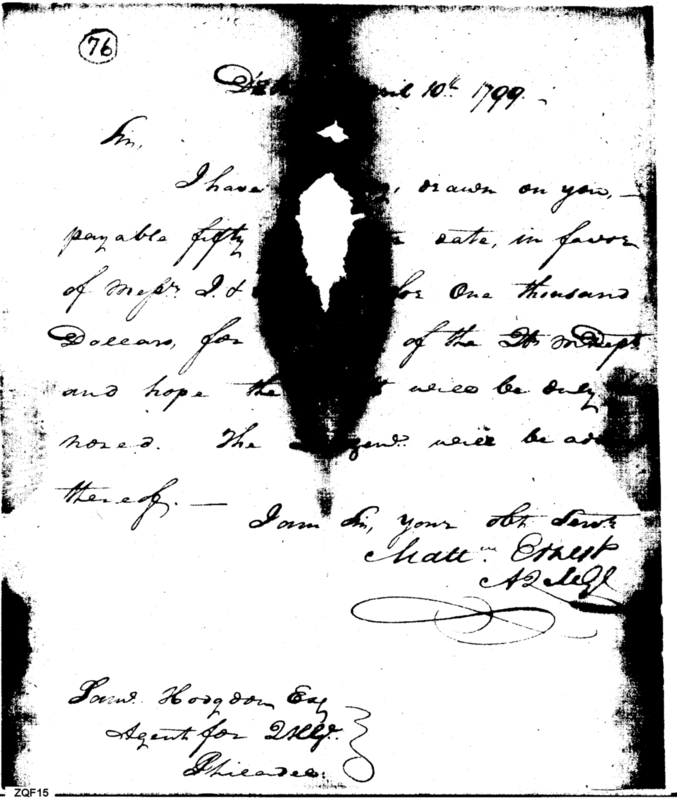 76
April 10th 1799.
Sir,
I have drawn on you, —
payable fifty date, in favor
of Messrs. J. & for One thousand
Dollars, for of the Qr. Mr. Dept.
and hope the will be duly
nored. The will be
thereof. —
I am Sir, your obt. Servt.
Matt'w. Ernest
A Q M Gl
Saml. Hodgdon Esq
Agent for Q M Gl.
Philadel:
ZQF15